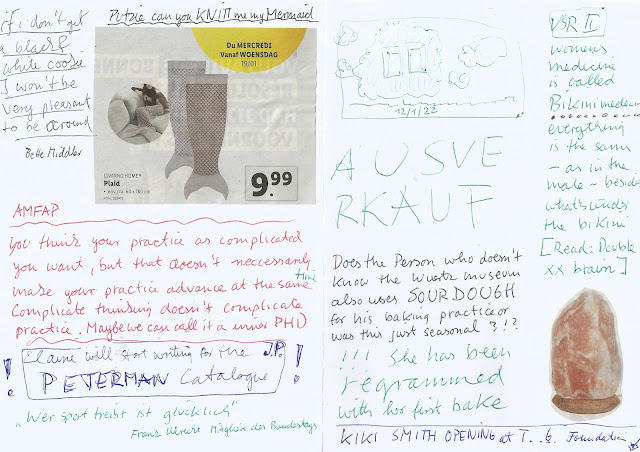 if i don't get
a black &
white cookie
I won't be
very pleasant
to be around
Bette Middler
Putzie can you KNIT me my Mermaid
Du MERCREDI
Vanaf WOENSDAG
19/01
LIVARNO HOME®
Plaid
9.99
AMFAP
You think your practice as complicated
you want, but that doesn't neccessarily
make your practice advance at the same time
Complicate thinking doesn't complicate
practice. Maybe we can call it a inner PHD
! Elaine will start writing for the J.P. !
PETERMAN Catalogue
"Wer sport treibt ist glücklich"
Franz Mitglied des Bundestags
12/1/22
AUSVE
RKAUF
Does the Person who doesn't
know the museum
also uses SOURDOUGH
for his baking practice or
was this just seasonal ?!?
!!! She has been
regrammed
with her first bake
KIKI SMITH OPENING at T...G. Foundation
VSR II
women's
medicine
is called
Bikini medicine
everything
is the same
- as in the
male - beside
what's under
the bikini
[Read: Double
xx brain]